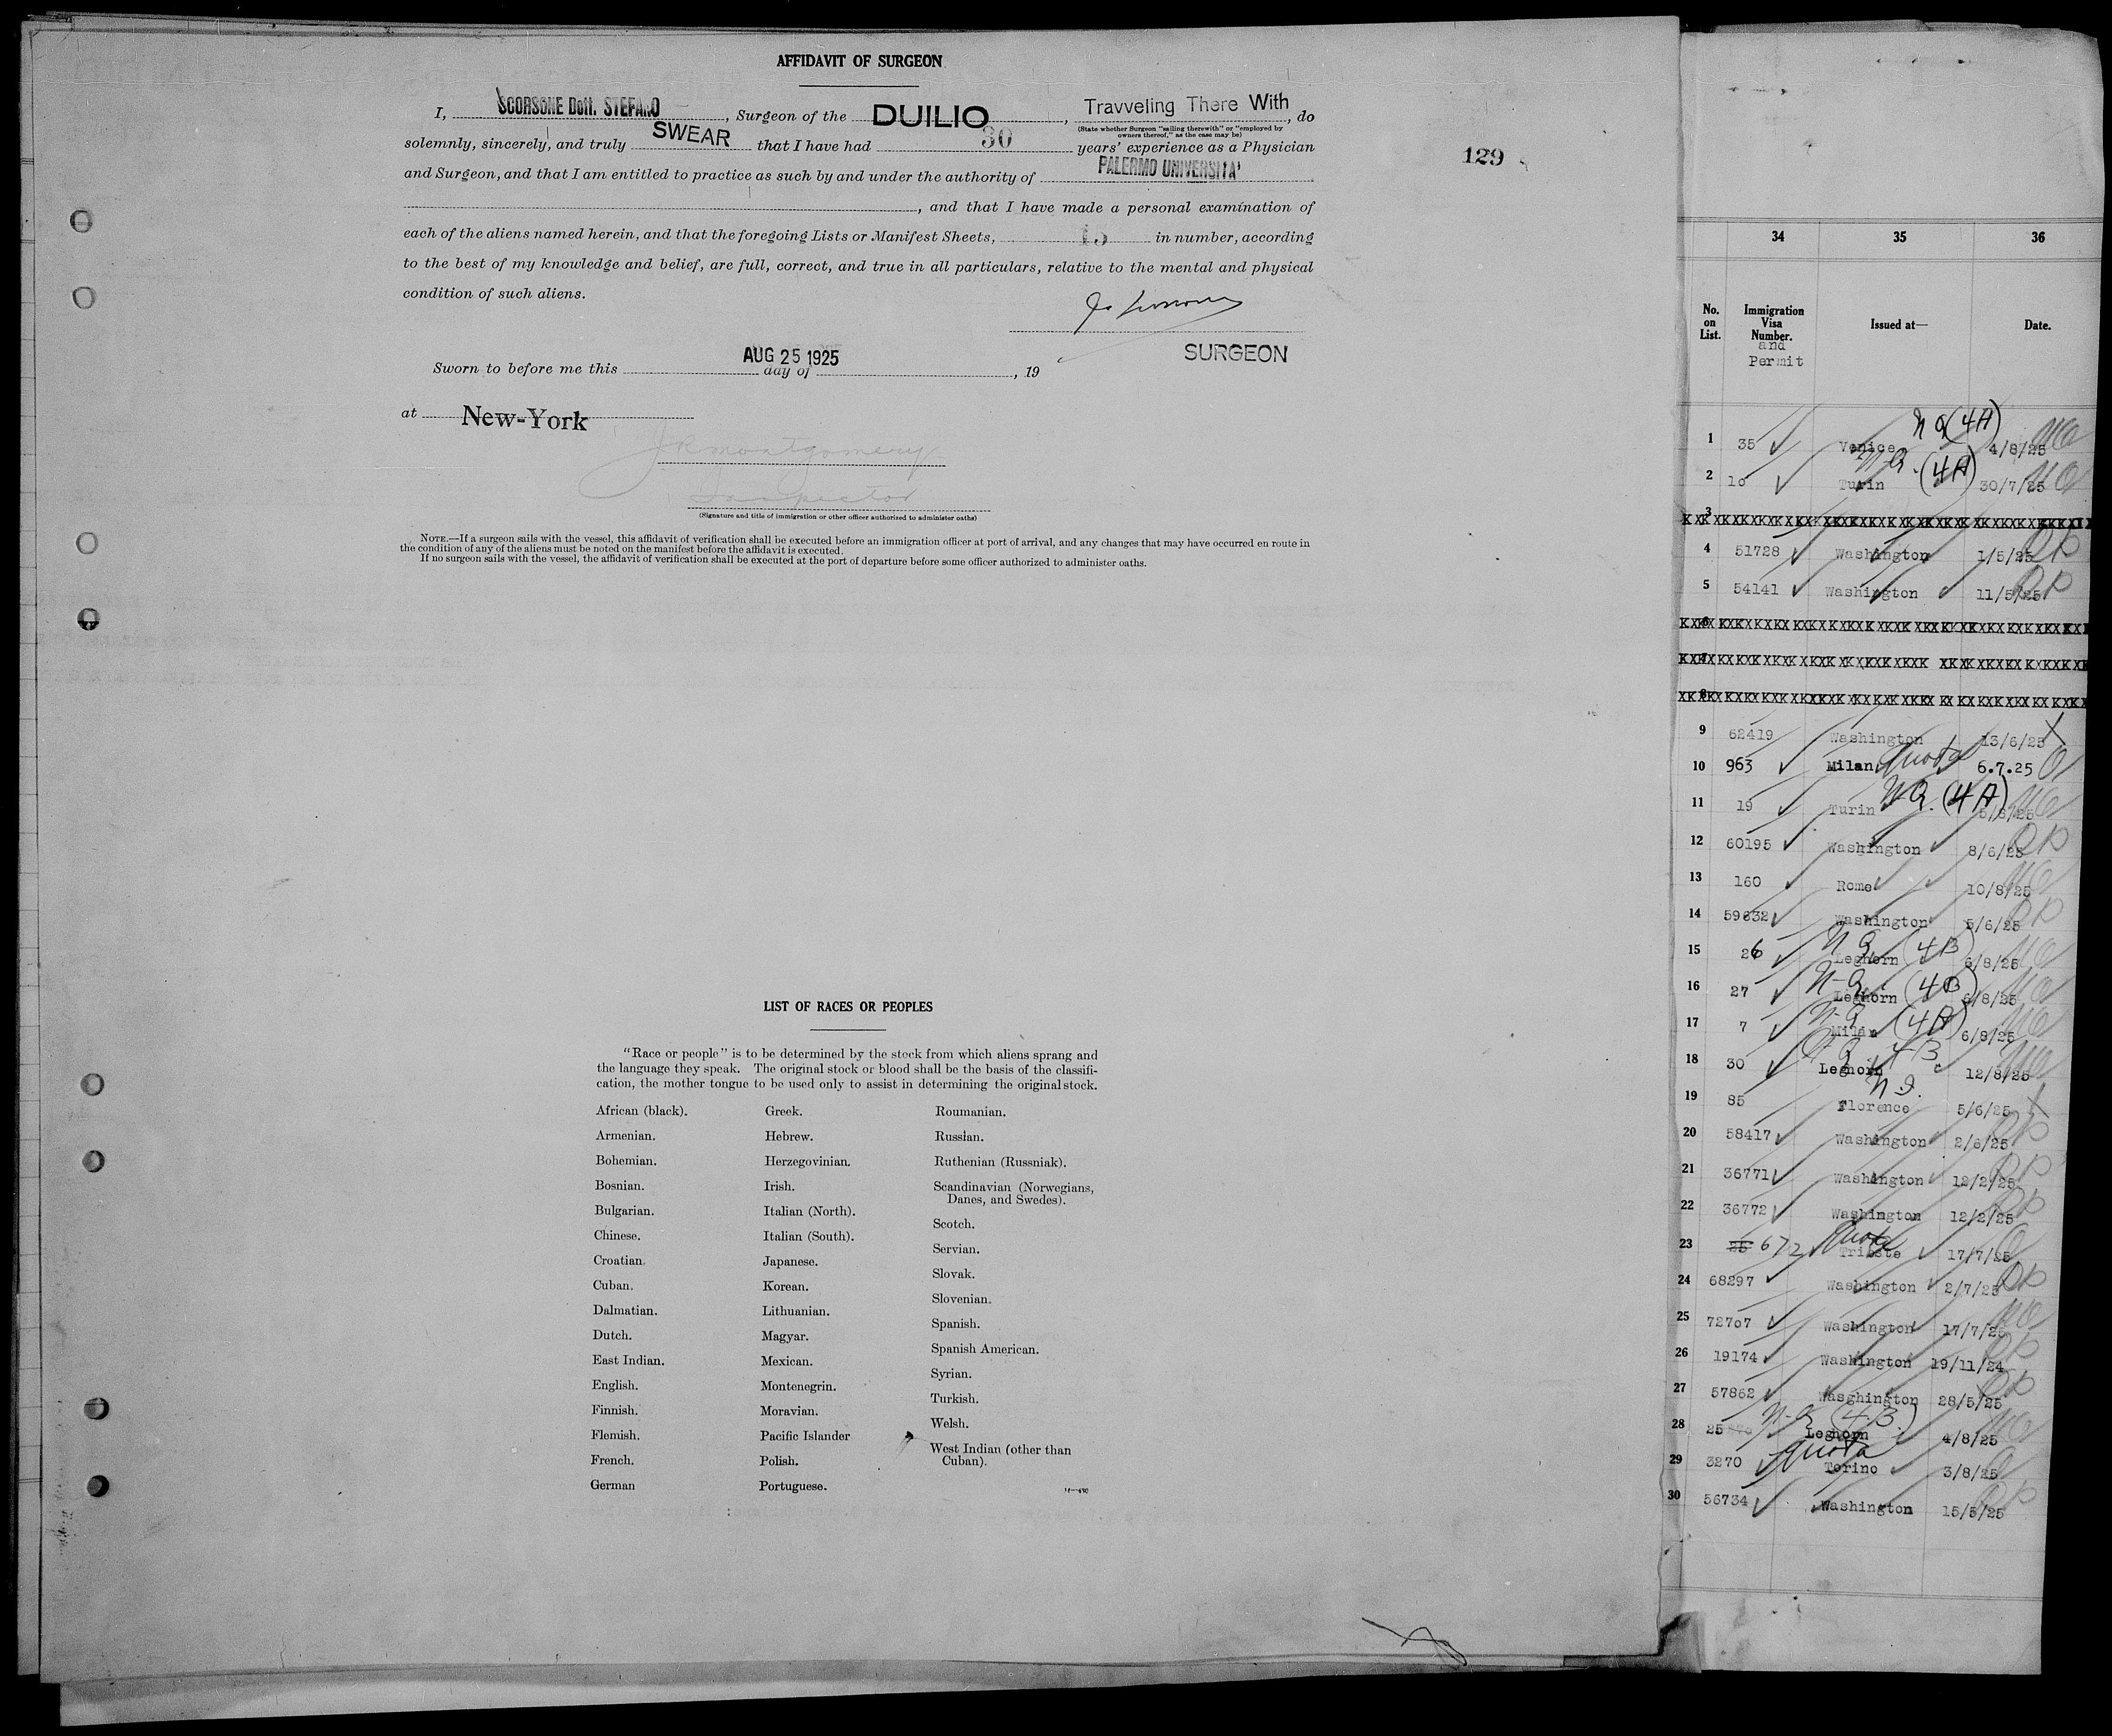 AFFIDAVIT OF SURGEON
I, SCORSONE Dott. STEFANO, Surgeon of the DUILIO, Travveling There With, do
(State whether Surgeon "sailing therewith" or "employed by
owners thereof," as the case may be)
solemnly, sincerely, and truly SWEAR that I have had 30 years' experience as a Physician
129
and Surgeon, and that I am entitled to practice as such by and under the authority of PALERMO UNIVERSITA'
, and that I have made a personal examination of
each of the aliens named herein, and that the foregoing Lists or Manifest Sheets, 15 in number, according
to the best of my knowledge and belief, are full, correct, and true in all particulars, relative to the mental and physical
condition of such aliens.
SURGEON
Sworn to before me this AUG 25 1925 day of , 19
at New-York
JRMontgomery
Inspector
(Signature and title of immigration or other officer authorized to administer oaths)
NOTE.—If a surgeon sails with the vessel, this affidavit of verification shall be executed before an immigration officer at port of arrival, and any changes that may have occurred en route in
the condition of any of the aliens must be noted on the manifest before the affidavit is executed.
If no surgeon sails with the vessel, the affidavit of verification shall be executed at the port of departure before some officer authorized to administer oaths.
LIST OF RACES OR PEOPLES
"Race or people" is to be determined by the stock from which aliens sprang and
the language they speak. The original stock or blood shall be the basis of the classifi-
cation, the mother tongue to be used only to assist in determining the original stock.
African (black).
Armenian.
Bohemian.
Bosnian.
Bulgarian.
Chinese.
Croatian.
Cuban.
Dalmatian.
Dutch.
East Indian.
English.
Finnish.
Flemish.
French.
German
Greek.
Hebrew.
Herzegovinian.
Irish.
Italian (North).
Italian (South).
Japanese.
Korean.
Lithuanian.
Magyar.
Mexican.
Montenegrin.
Moravian.
Pacific Islander
Polish.
Portuguese.
Roumanian.
Russian.
Ruthenian (Russniak).
Scandinavian (Norwegians,
Danes, and Swedes).
Scotch.
Servian.
Slovak.
Slovenian.
Spanish.
Spanish American.
Syrian.
Turkish.
Welsh.
West Indian (other than
Cuban).
34 35 36
No. on List. Immigration Visa Number. and Permit Issued at— Date.
1 35 Venice NQ (4A) 4/8/25 NQ
2 10 Turin N-Q. (4A) 30/7/25 NQ
3
4 51728 Washington 1/5/25 RP
5 54141 Washington 11/5/25 RP
6
7
8
9 62419 Washington 13/6/25
10 963 Milan Quota 6.7.25 Q
11 19 Turin N-Q. (4A) 5/8/25 NQ
12 60195 Washington 8/6/25 RP
13 160 Rome 10/8/25 NQ
14 59632 Washington 5/6/25 RP
15 26 Leghorn N Q (4B) 6/8/25 NQ
16 27 Leghorn N-Q (4B) 6/8/25 NQ
17 7 Milan N-Q (4A) 6/8/25 NQ
18 30 Leghorn 4B 12/8/25 NQ
19 85 Florence 5/6/25
20 58417 Washington 2/6/25 RP
21 36771 Washington 12/2/25 RP
22 36772 Washington 12/2/25 RP
23 25 672 Trieste Quota 17/7/25 Q
24 68297 Washington 2/7/25 RP
25 72707 Washington 17/7/25 NQ
26 19174 Washington 19/11/24 RP
27 57862 Wasghington 28/5/25 RP
28 25 Leghorn N-Q (4B) 4/8/25 NQ
29 3270 Torino Quota 3/8/25 Q
30 56734 Washington 15/5/25 RP